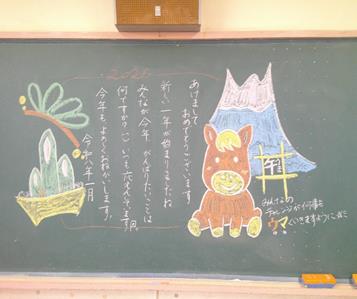 2026
あけまして
おめでとうございます
新しい一年が始まりましたね
みんなが今年、がんばりたいことは
何ですか(^^)いつも応えんしてます
今年もよろくおねがいします!
令和八年一月
午
みんなの
チャレンジが何事も
ウマくいきますように